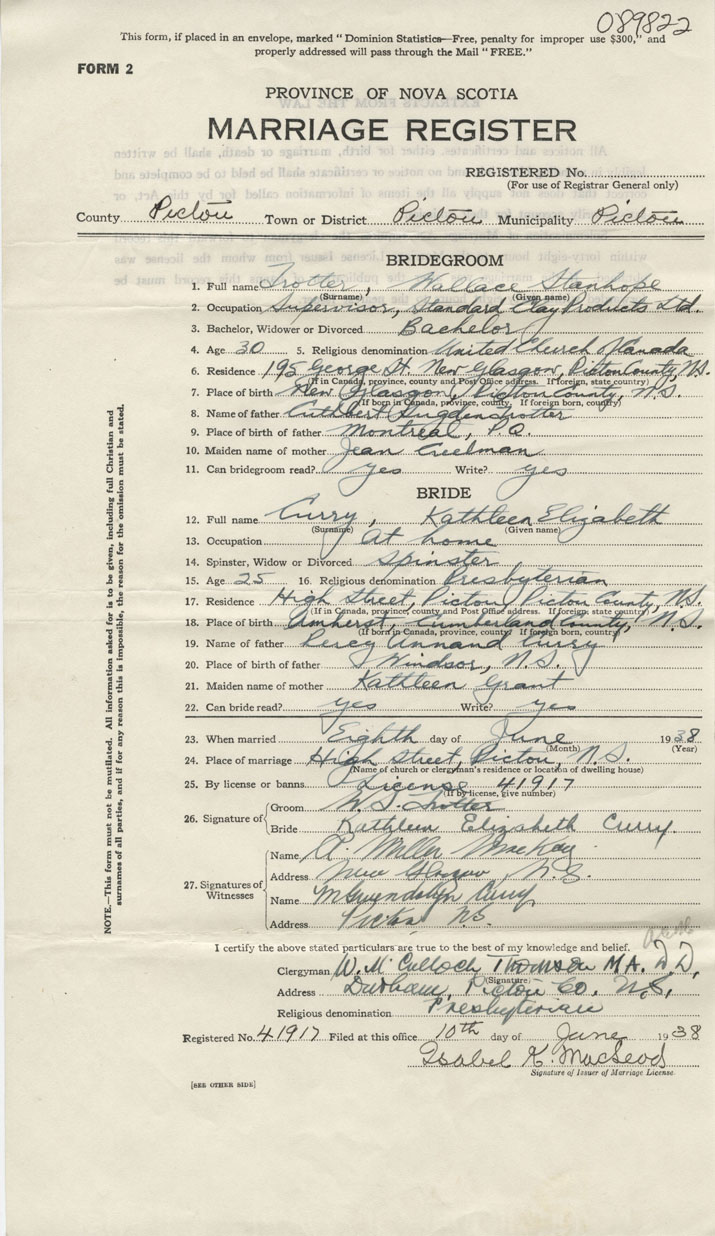 089822
This form, if placed in an envelope, marked "Dominion Statistics—Free, penalty for improper use $300," and
properly addressed will pass through the Mail "FREE."
FORM 2
PROVINCE OF NOVA SCOTIA
MARRIAGE REGISTER
REGISTERED No.
(For use of Registrar General only)
County Pictou Town or District Pictou Municipality Pictou
BRIDEGROOM
1. Full name Trotter, Wallace Stanhope
(Surname) (Given name)
2. Occupation Supervisor, Standard Clay Products Ltd.
3. Bachelor, Widower or Divorced Bachelor
4. Age 30 5. Religious denomination United Church of Canada
6. Residence 195 George St. New Glasgow, Pictou County, N.S.
(If in Canada, province, county and Post Office address. If foreign, state country)
7. Place of birth New Glasgow, Pictou County, N.S.
(If born in Canada, province, county. If foreign born, country)
8. Name of father Cuthbert Sugden Trotter
9. Place of birth of father Montreal, P.Q.
10. Maiden name of mother Jean Creelman
11. Can bridegroom read? yes Write? yes
BRIDE
12. Full name Curry, Kathleen Elizabeth
(Surname) (Given name)
13. Occupation At home
14. Spinster, Widow or Divorced Spinster
15. Age 25 16. Religious denomination Presbyterian
17. Residence High Street, Pictou, Pictou County, N.S.
(If in Canada, province, county and Post Office address. If foreign, state country)
18. Place of birth Amherst, Cumberland County, N.S.
(If born in Canada, province, county. If foreign born, country)
19. Name of father Percy Annand Curry
20. Place of birth of father Windsor, N.S.
21. Maiden name of mother Kathleen Grant
22. Can bride read? yes Write? yes
23. When married Eighth day of June 1938
(Month) (Year)
24. Place of marriage High Street, Pictou, N.S.
(Name of church or clergyman's residence or location of dwelling house)
25. By license or banns License 41917
(If by license, give number)
26. Signature of
Groom W. S. Trotter
Bride Kathleen Elizabeth Curry
27. Signatures of Witnesses
Name A. Miller MacKay
Address New Glasgow, N.S.
Name M Gwendolyn Curry
Address Pictou N.S.
I certify the above stated particulars are true to the best of my knowledge and belief.
Clergyman W. McCulloch Thomson M.A. D.D.
(Signature)
Address Durham, Pictou Co. N.S.
Religious denomination Presbyterian
Registered No. 41917 Filed at this office 10th day of June 1938
Isabel K. MacLeod
Signature of Issuer of Marriage License.
[SEE OTHER SIDE]
NOTE.—This form must not be mutilated. All information asked for is to be given, including full Christian and
surnames of all parties, and if for any reason this is impossible, the reason for the omission must be stated.